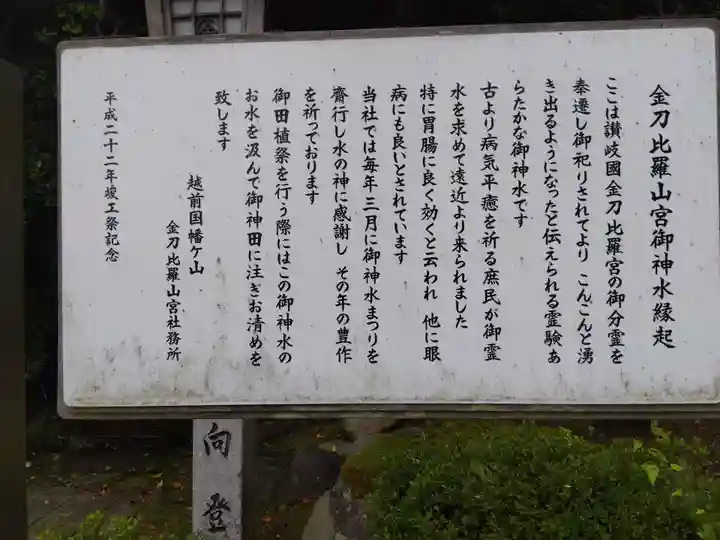 金刀比羅山宮御神水縁起
ここは讃岐國金刀比羅宮の御分霊を
奉遷し御祀りされてより こんこんと湧
き出るようになったと伝えられる霊験あ
らたかな御神水です
古より病気平癒を祈る庶民が御霊
水を求めて遠近より来られました
特に胃腸に良く効くと云われ 他に眼
病にも良いとされています
当社では毎年三月に御神水まつりを
齎行し水の神に感謝し その年の豊作
を祈っております
御田植祭を行う際にはこの御神水の
お水を汲んで御神田に注ぎお清めを
致します
越前国幡ヶ山
金刀比羅山宮社務所
平成二十二年竣工祭記念
向登